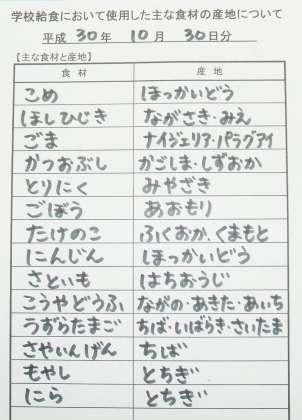 学校給食において使用した主な食材の産地について
平成 30 年 10 月 30 日分
【主な食材と産地】
食材 産地
こめ ほっかいどう
ほしひじき ながさき・みえ
ごま ナイジェリア・パラグアイ
かつおぶし かごしま・しずおか
とりにく みやざき
ごぼう あおもり
たけのこ ふくおか、くまもと
にんじん ほっかいどう
さといも はちおうじ
こうやどうふ ながの・あきた・あいち
うずらたまご ちば・いばらき・さいたま
さやいんげん ちば
もやし とちぎ
にら とちぎ